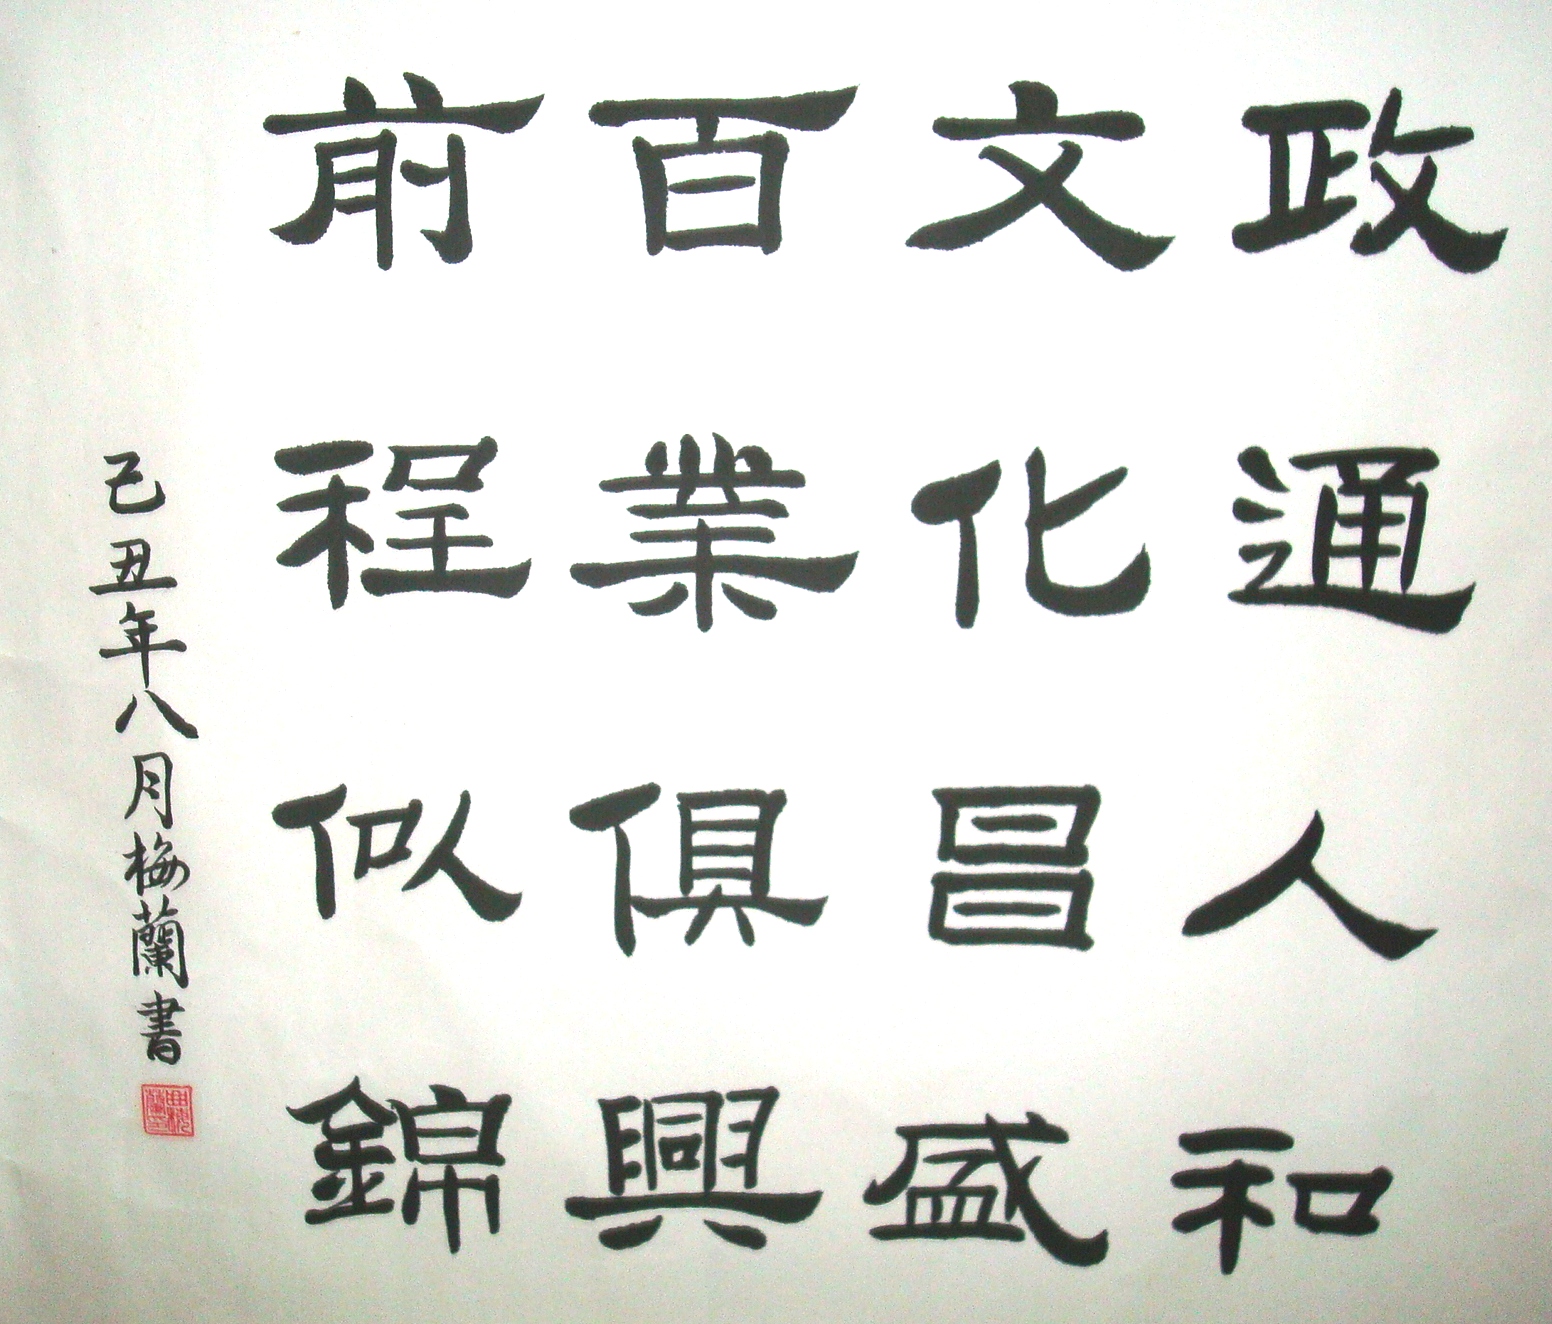 政通人和
文化昌盛
百業俱興
前程似錦
己丑年八月梅蘭書